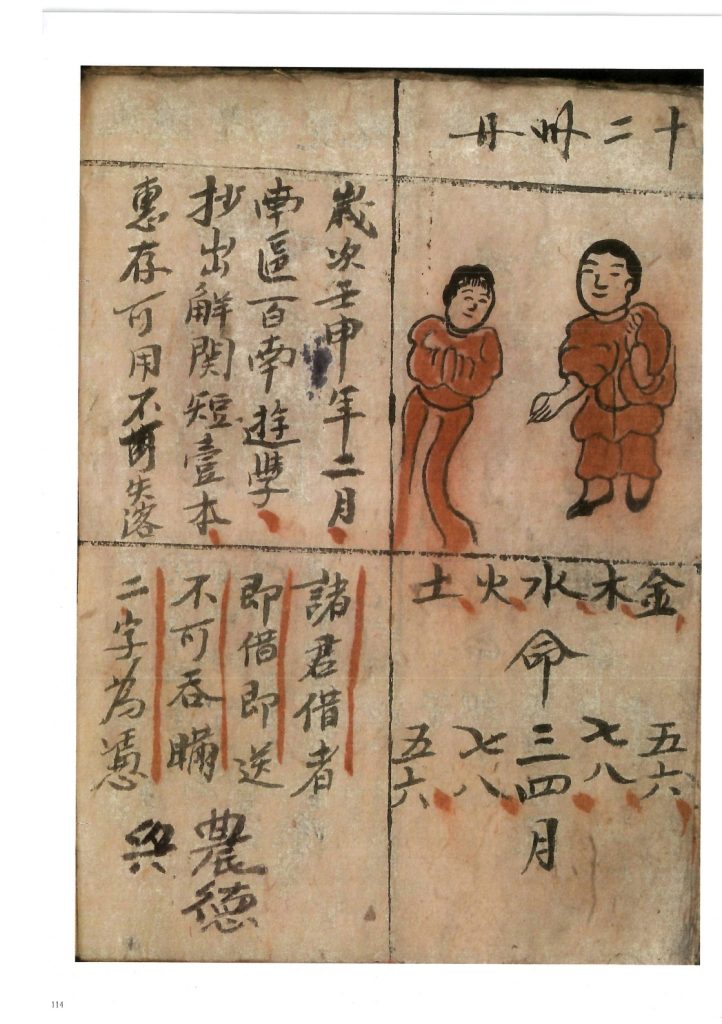 十二
金木水火土
命
五六 七八 三四 七八 五六
月
歲次壬申年二月
南區百南遊學
抄出解関短壹本
惠存可用不可失落
諸君借者
即借即送
不可吞瞞
二字為憑
農德
114